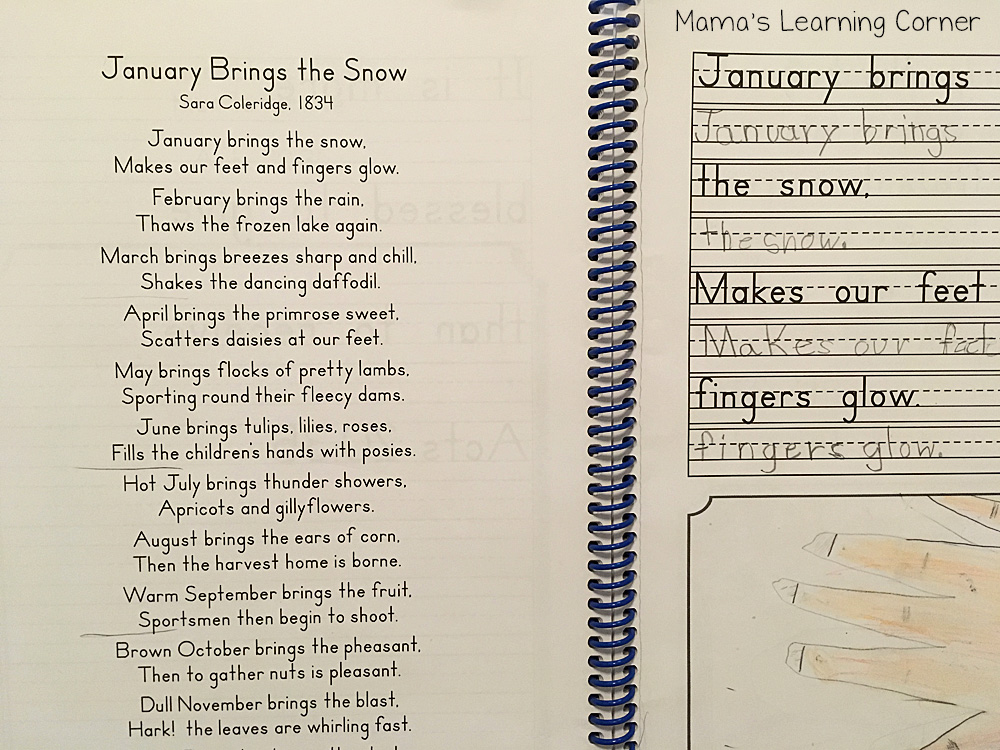 January Brings the Snow
Sara Coleridge, 1834
January brings the snow,
Makes our feet and fingers glow.
February brings the rain,
Thaws the frozen lake again.
March brings breezes sharp and chill,
Shakes the dancing daffodil.
April brings the primrose sweet,
Scatters daisies at our feet.
May brings flocks of pretty lambs,
Sporting round their fleecy dams.
June brings tulips, lilies, roses,
Fills the children's hands with posies.
Hot July brings thunder showers,
Apricots and gillyflowers.
August brings the ears of corn,
Then the harvest home is borne.
Warm September brings the fruit,
Sportsmen then begin to shoot.
Brown October brings the pheasant,
Then to gather nuts is pleasant.
Dull November brings the blast,
Hark! the leaves are whirling fast.
Mama's Learning Corner
January brings
January brings
the snow,
the snow.
Makes our feet
Makes our
fingers glow.
fingers glow.